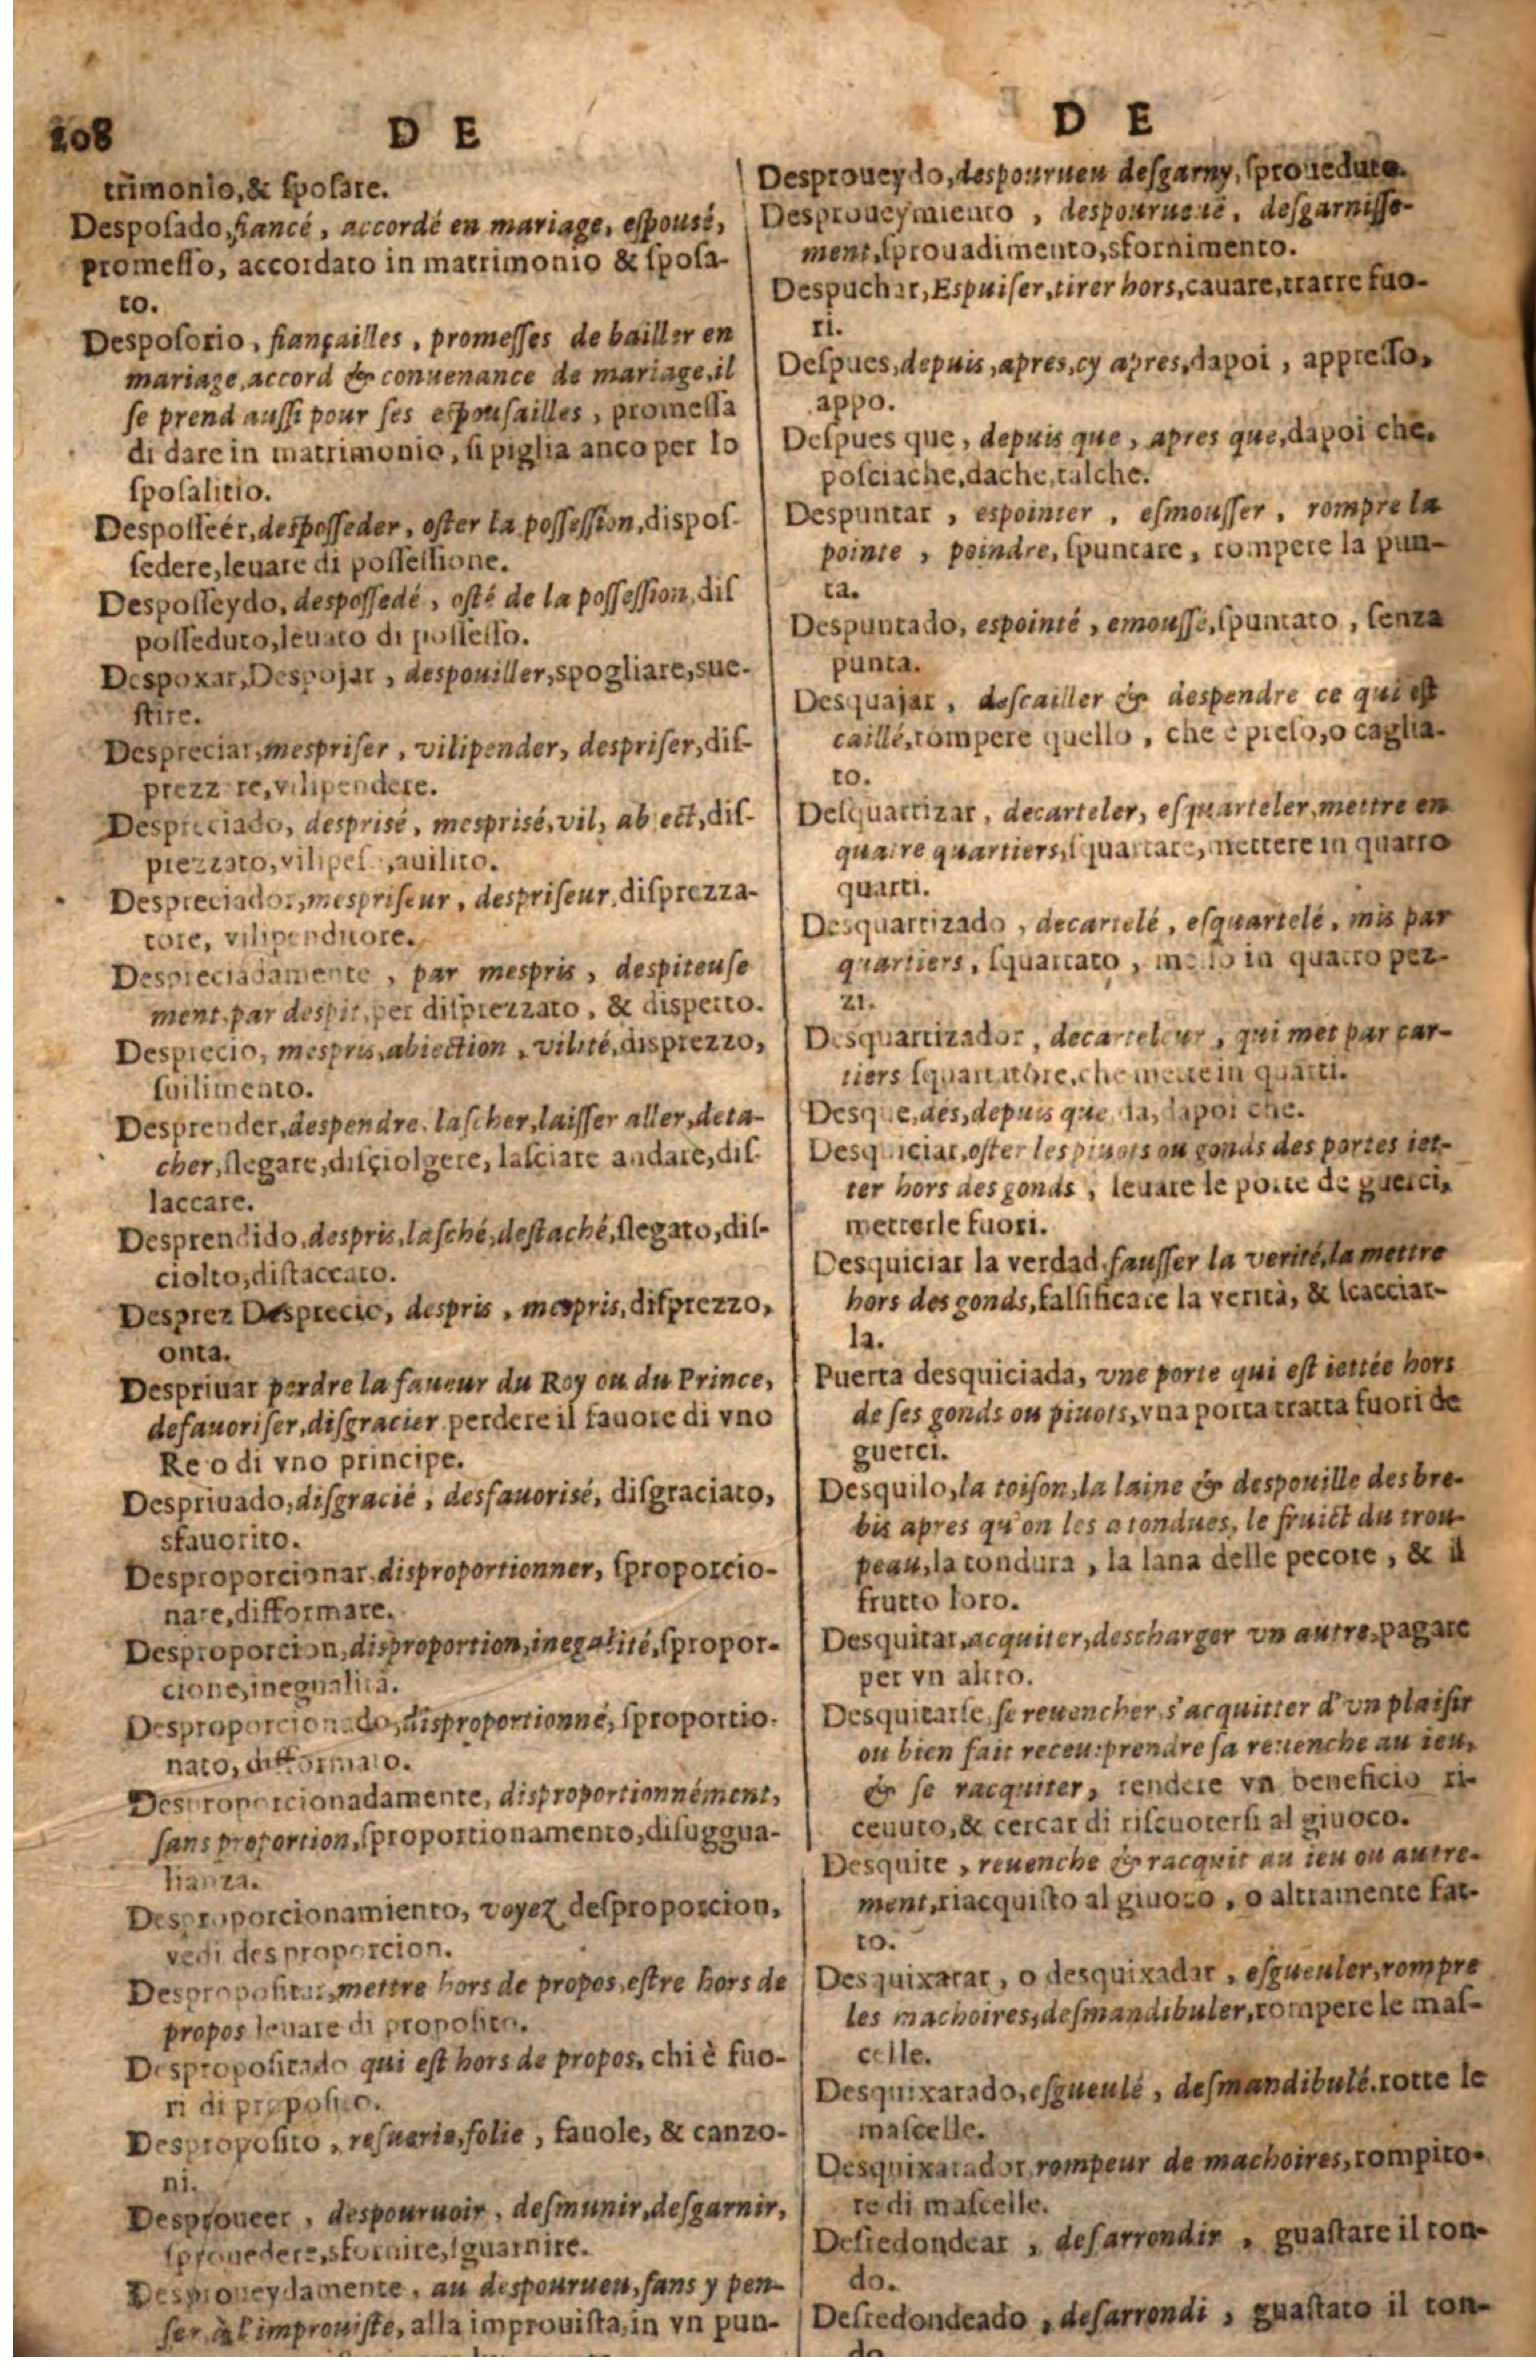 208 D E
trimonio,& ſpoſare.
Despoſado,fiancé, accordé en mariage, eſpousé,
promeſſo, accordato in matrimonio & ſpoſa-
to.
Despoſorio, fiançailles, promeſſes de bailler en
mariage,accord & conuenance de mariage,il
ſe prend auſſi pour ſes eſpouſailles, promeſſa
di dare in matrimonio, ſi piglia anco per lo
ſpoſalitio.
Despoſſeér,deſpoſſeder, oſter la poſſeſſion,dispoſ-
ſedere,leuare di poſſeſſione.
Despoſſeydo, despoſſedé, oſté de la poſſeſſion,diſ
poſſeduto,leuato di poſſeſſo.
Despoxar,Despojar, despouiller,spogliare,sue-
ſtire.
Despreciar,mespriſer, vilipender, despriſer,diſ-
prezz re,vilipendere.
Despreciado, desprisé, mesprisé,vil, ab ect,diſ-
prezzato,vilipeſ ,auilito.
Despreciador,mespriſeur, despriſeur,diſprezza-
tore, vilipenditore.
Despreciadamente, par mespris, despiteuse
ment,par despit,per diſprezzato, & dispetto.
Desprecio, mespris,abiection, vilité,disprezzo,
ſuilimento.
Desprender,despendre,laſcher,laiſſer aller,deta-
cher,ſlegare,diſçiolgere, laſciare andare,diſ-
laccare.
Desprendido,despris,laſché,deſtaché,ſlegato,diſ-
ciolto,diſtaccato.
Desprez Desprecio, despris, mespris,diſprezzo,
onta.
Despriuar perdre la faueur du Roy ou du Prince,
defauoriſer,diſgracier perdere il fauore di vno
Re o di vno principe.
Despriuado,diſgracié, desfauorisé, diſgraciato,
sfauorito.
Desproporcionar,disproportionner, ſproporcio-
nare,difformare.
Desproporcion,disproportion,inegalité,ſpropor-
cione,inegualità.
Desproporcionado,disproportionné, ſproportio-
nato, difformato.
Desproporcionadamente, disproportionnément,
ſans proportion,ſproportionamento,diſuggua-
lianza.
Desproporcionamiento, voyez deſproporcion,
vedi desproporcion.
Despropoſitar,mettre hors de propos,eſtre hors de
propos leuare di propoſito.
Despropoſitado qui eſt hors de propos, chi è fuo-
ri di propoſito.
Despropoſito, reſuerie,folie, fauole, & canzo-
ni.
Desproueer, despouruoir, deſmunir,deſgarnir,
ſprouedere,sfornire,ſguarnire.
Desproueydamente, au despourueu,ſans y pen-
ſer,à l'improuiſte, alla improuiſta,in vn pun-
D E
Desproueydo,despourueu deſgarny,ſproueduto.
Desproueymiento, despourueuë, deſgarniſſe-
ment,ſprouadimento,sfornimento.
Despuchar,Espuiſer,tirer hors,cauare,trarre fuo-
ri.
Deſpues,depuis,apres,cy apres,dapoi, appreſſo,
appo.
Deſpues que, depuis que, apres que,dapoi che,
poſciache,dache,talche.
Despuntar, espointer, eſmouſſer, rompre la
pointe, poindre,ſpuntare, rompere la pun-
ta.
Despuntado, espointé, emouſſé,ſpuntato, ſenza
punta.
Desquajar, deſcailler & despendre ce qui eſt
caillé,rompere quello, che è preſo,o caglia-
to.
Deſquartizar, decarteler, eſquarteler,mettre en
quatre quartiers,ſquartare,mettere in quatro
quarti.
Desquartizado, decartelé, eſquartelé, mis par
quartiers, ſquartato, meſſo in quatro pez-
zi.
Desquartizador, decarteleur, qui met par car-
tiers ſquartatore,che mette in quarti.
Desque,des,depuis que,da,dapoi che.
Desquiciar,oſter les piuots ou gonds des portes iet-
ter hors des gonds, leuare le porte de guerci,
metterle fuori.
Desquiciar la verdad,fauſſer la verité,la mettre
hors des gonds,falſificare la verità, & ſcacciar-
la.
Puerta desquiciada, vne porte qui eſt iettée hors
de ſes gonds ou piuots,vna porta tratta fuori de
guerci.
Desquilo,la toiſon,la laine & despouille des bre-
bis apres qu'on les a tondues, le fruict du trou-
peau,la tondura, la lana delle pecore, & il
frutto loro.
Desquitar,acquiter,descharger vn autre,pagare
per vn altro.
Desquitarſe,ſe reuencher,s'acquitter d'vn plaiſir
ou bien fait receu:prendre ſa reuenche au ieu,
& ſe racquiter, rendere vn beneficio ri-
ceuuto,& cercar di riſcuoterſi al giuoco.
Desquite, reuenche & racquit au ieu ou autre-
ment,riacquiſto al giuoco, o altramente fat-
to.
Desquixarar, o desquixadar, eſgueuler,rompre
les machoires,deſmandibuler,rompere le maſ-
celle.
Desquixarado,eſgueulé, deſmandibulé,rotte le
maſcelle.
Desquixarador rompeur de machoires,rompito-
re di maſcelle.
Deſredondear, deſarrondir, guaſtare il ton-
do.
Deſredondeado, deſarrondi, guaſtato il ton-
do